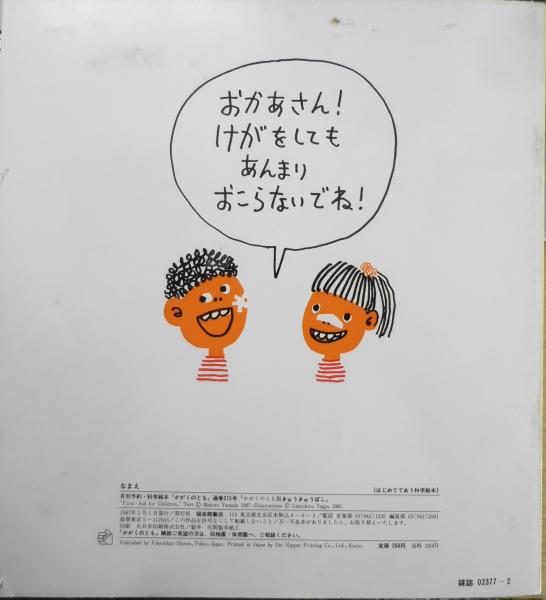 おかあさん!
けがをしても
あんまり
おこらないでね!
なまえ
月刊予約・科学絵本「かがくのとも」通巻215号「かがくのとも版きゅうきゅうばこ」 (はじめてであう科学絵本)
"First-Aid for Children," Text © Makoto Yamada 1987. Illustrations © Genichiro Yagyu 1987.
1987年2月1日発行/発行所 福音館書店 113 東京都文京区本駒込6-6-3/電話 営業部 03(942)1226 編集部 03(942)2081
振替東京5-117645/この作品を許可なくして転載しないこと/万一不良本がありましたら、お取り替えいたします。
印刷 大日本印刷株式会社/製本 多田製本紙工
「かがくのとも」購読ご希望の方は、幼稚園・保育園へ、ご相談ください。 定価 250円 送料 200円
Published by Fukuinkan-Shoten, Tokyo, Japan. Printed in Japan by Dai Nippon Printing Co., Ltd., Kyoto.
雑誌 02377-2